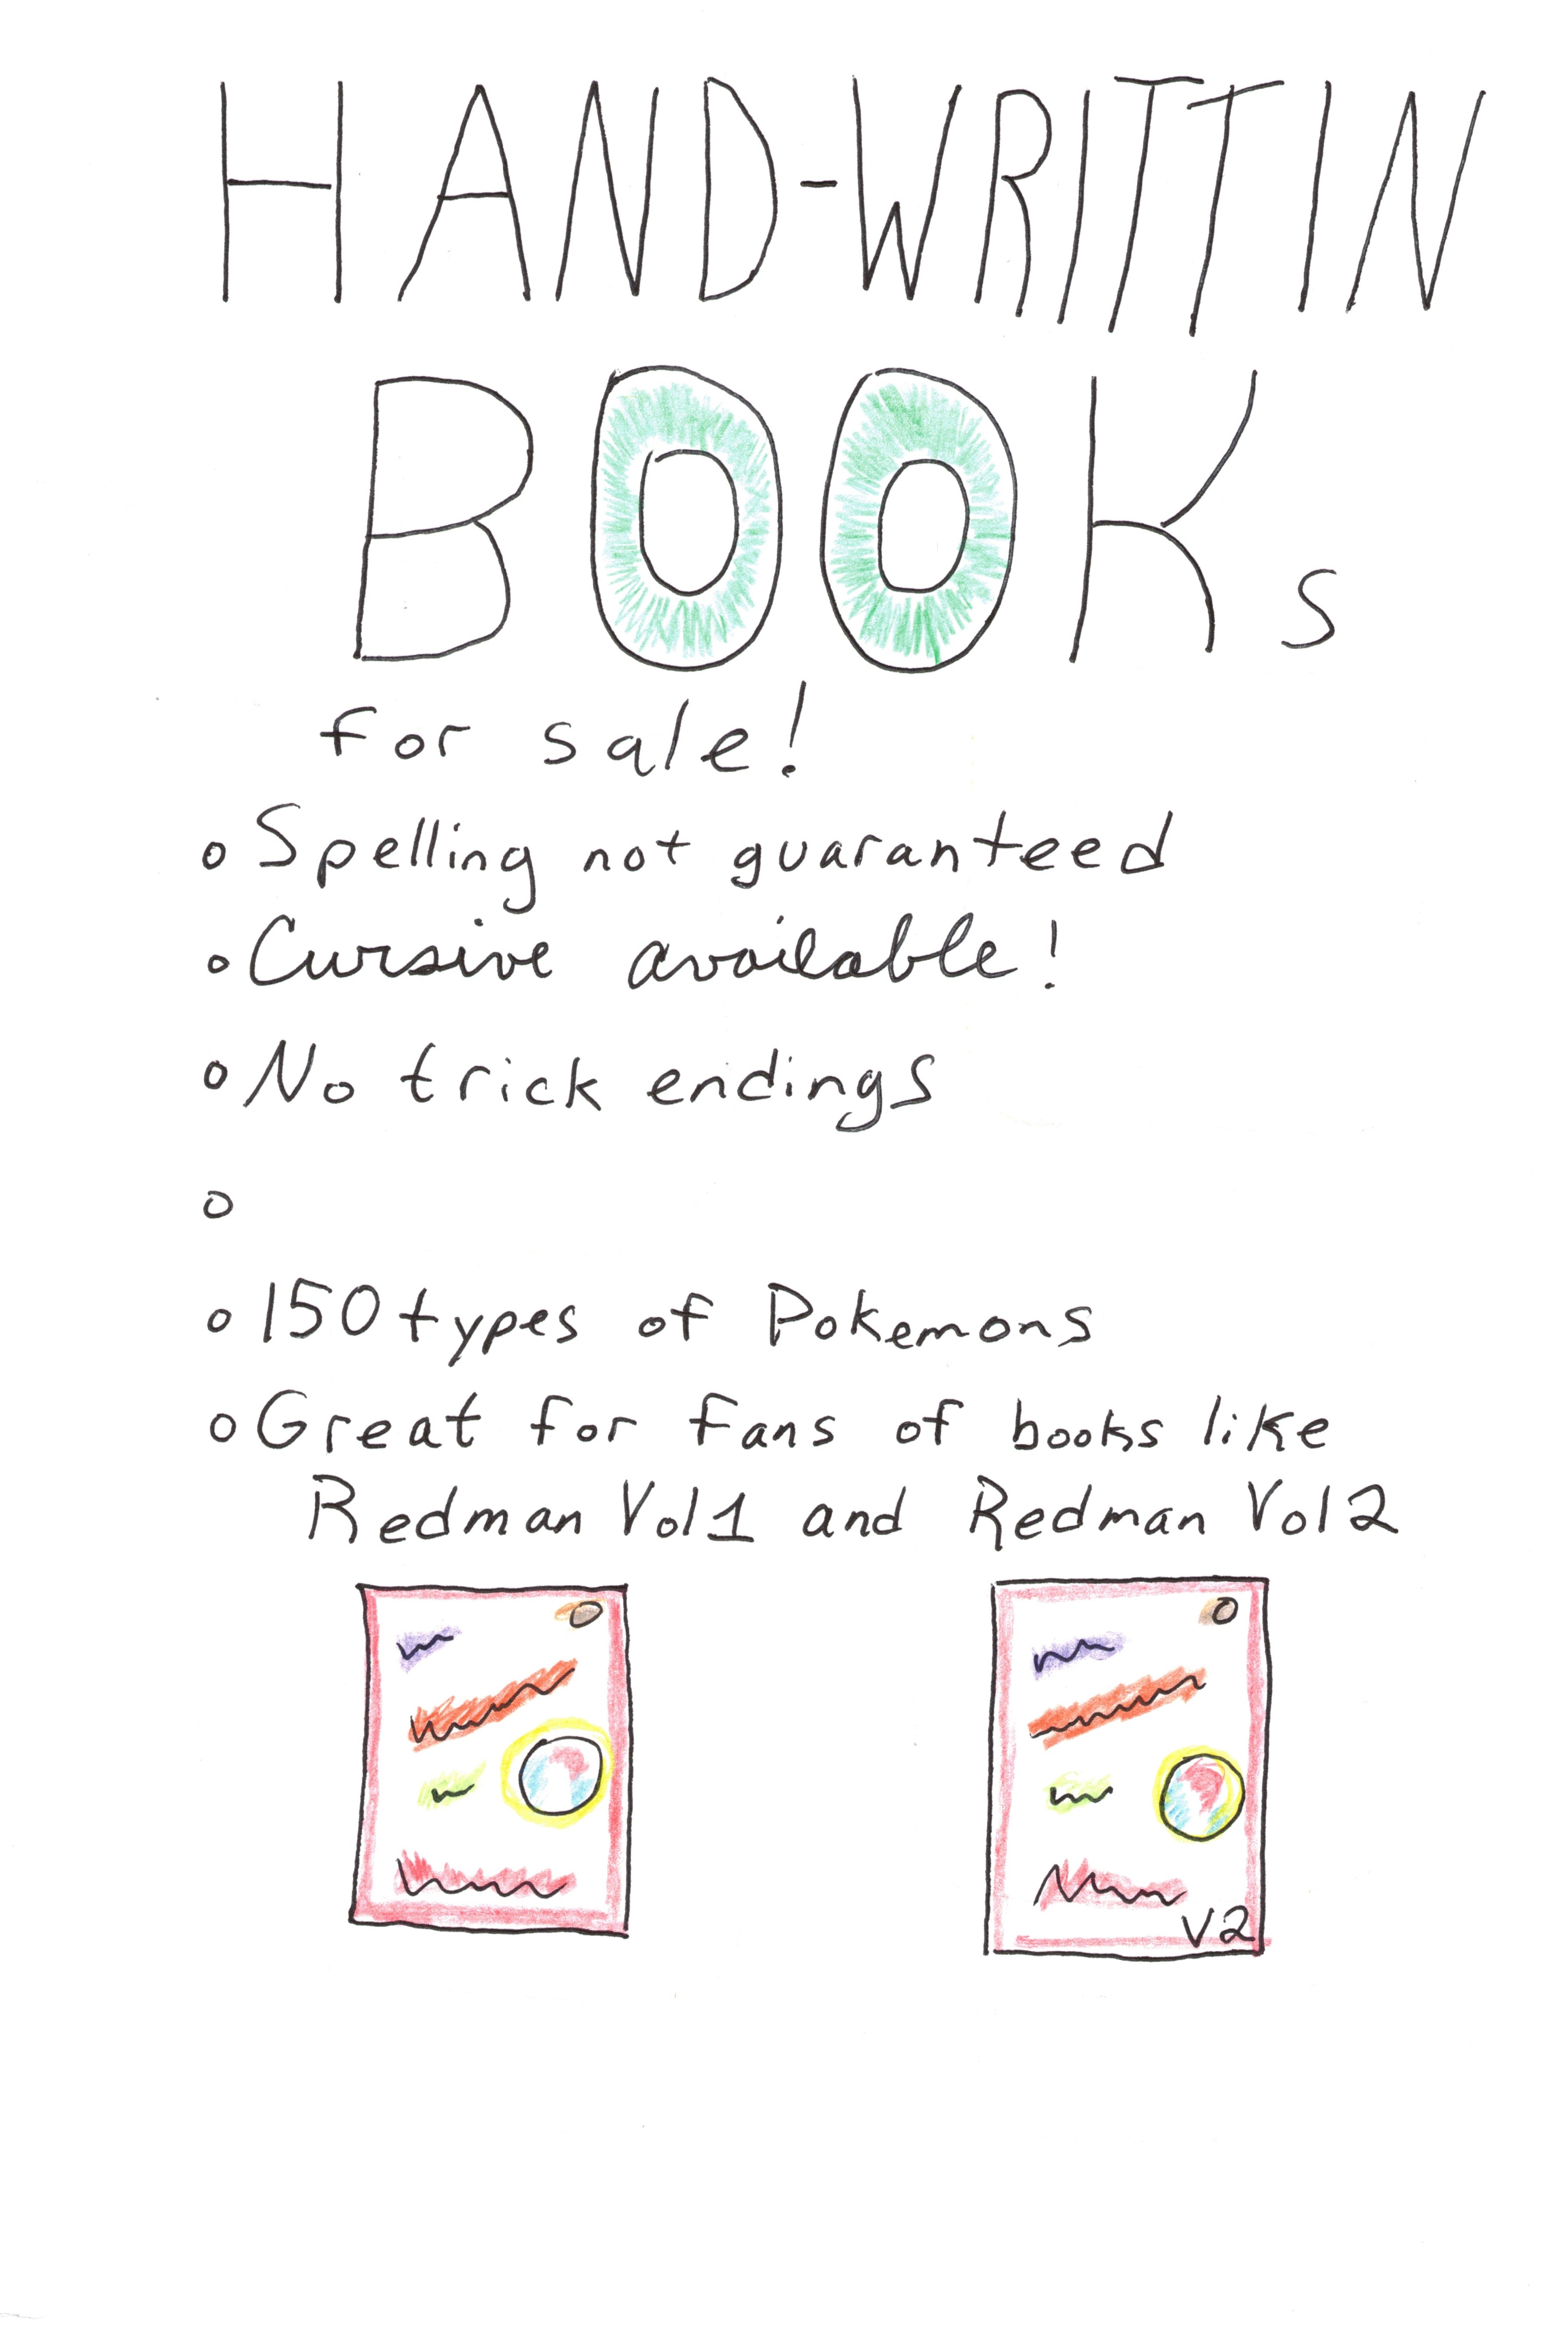 HAND-WRITTIN
BOOKs
for sale!
o Spelling not guaranteed
o Cursive available!
o No trick endings
o
o 150 types of Pokemons
o Great for fans of books like
Redman Vol1 and Redman Vol2
V2